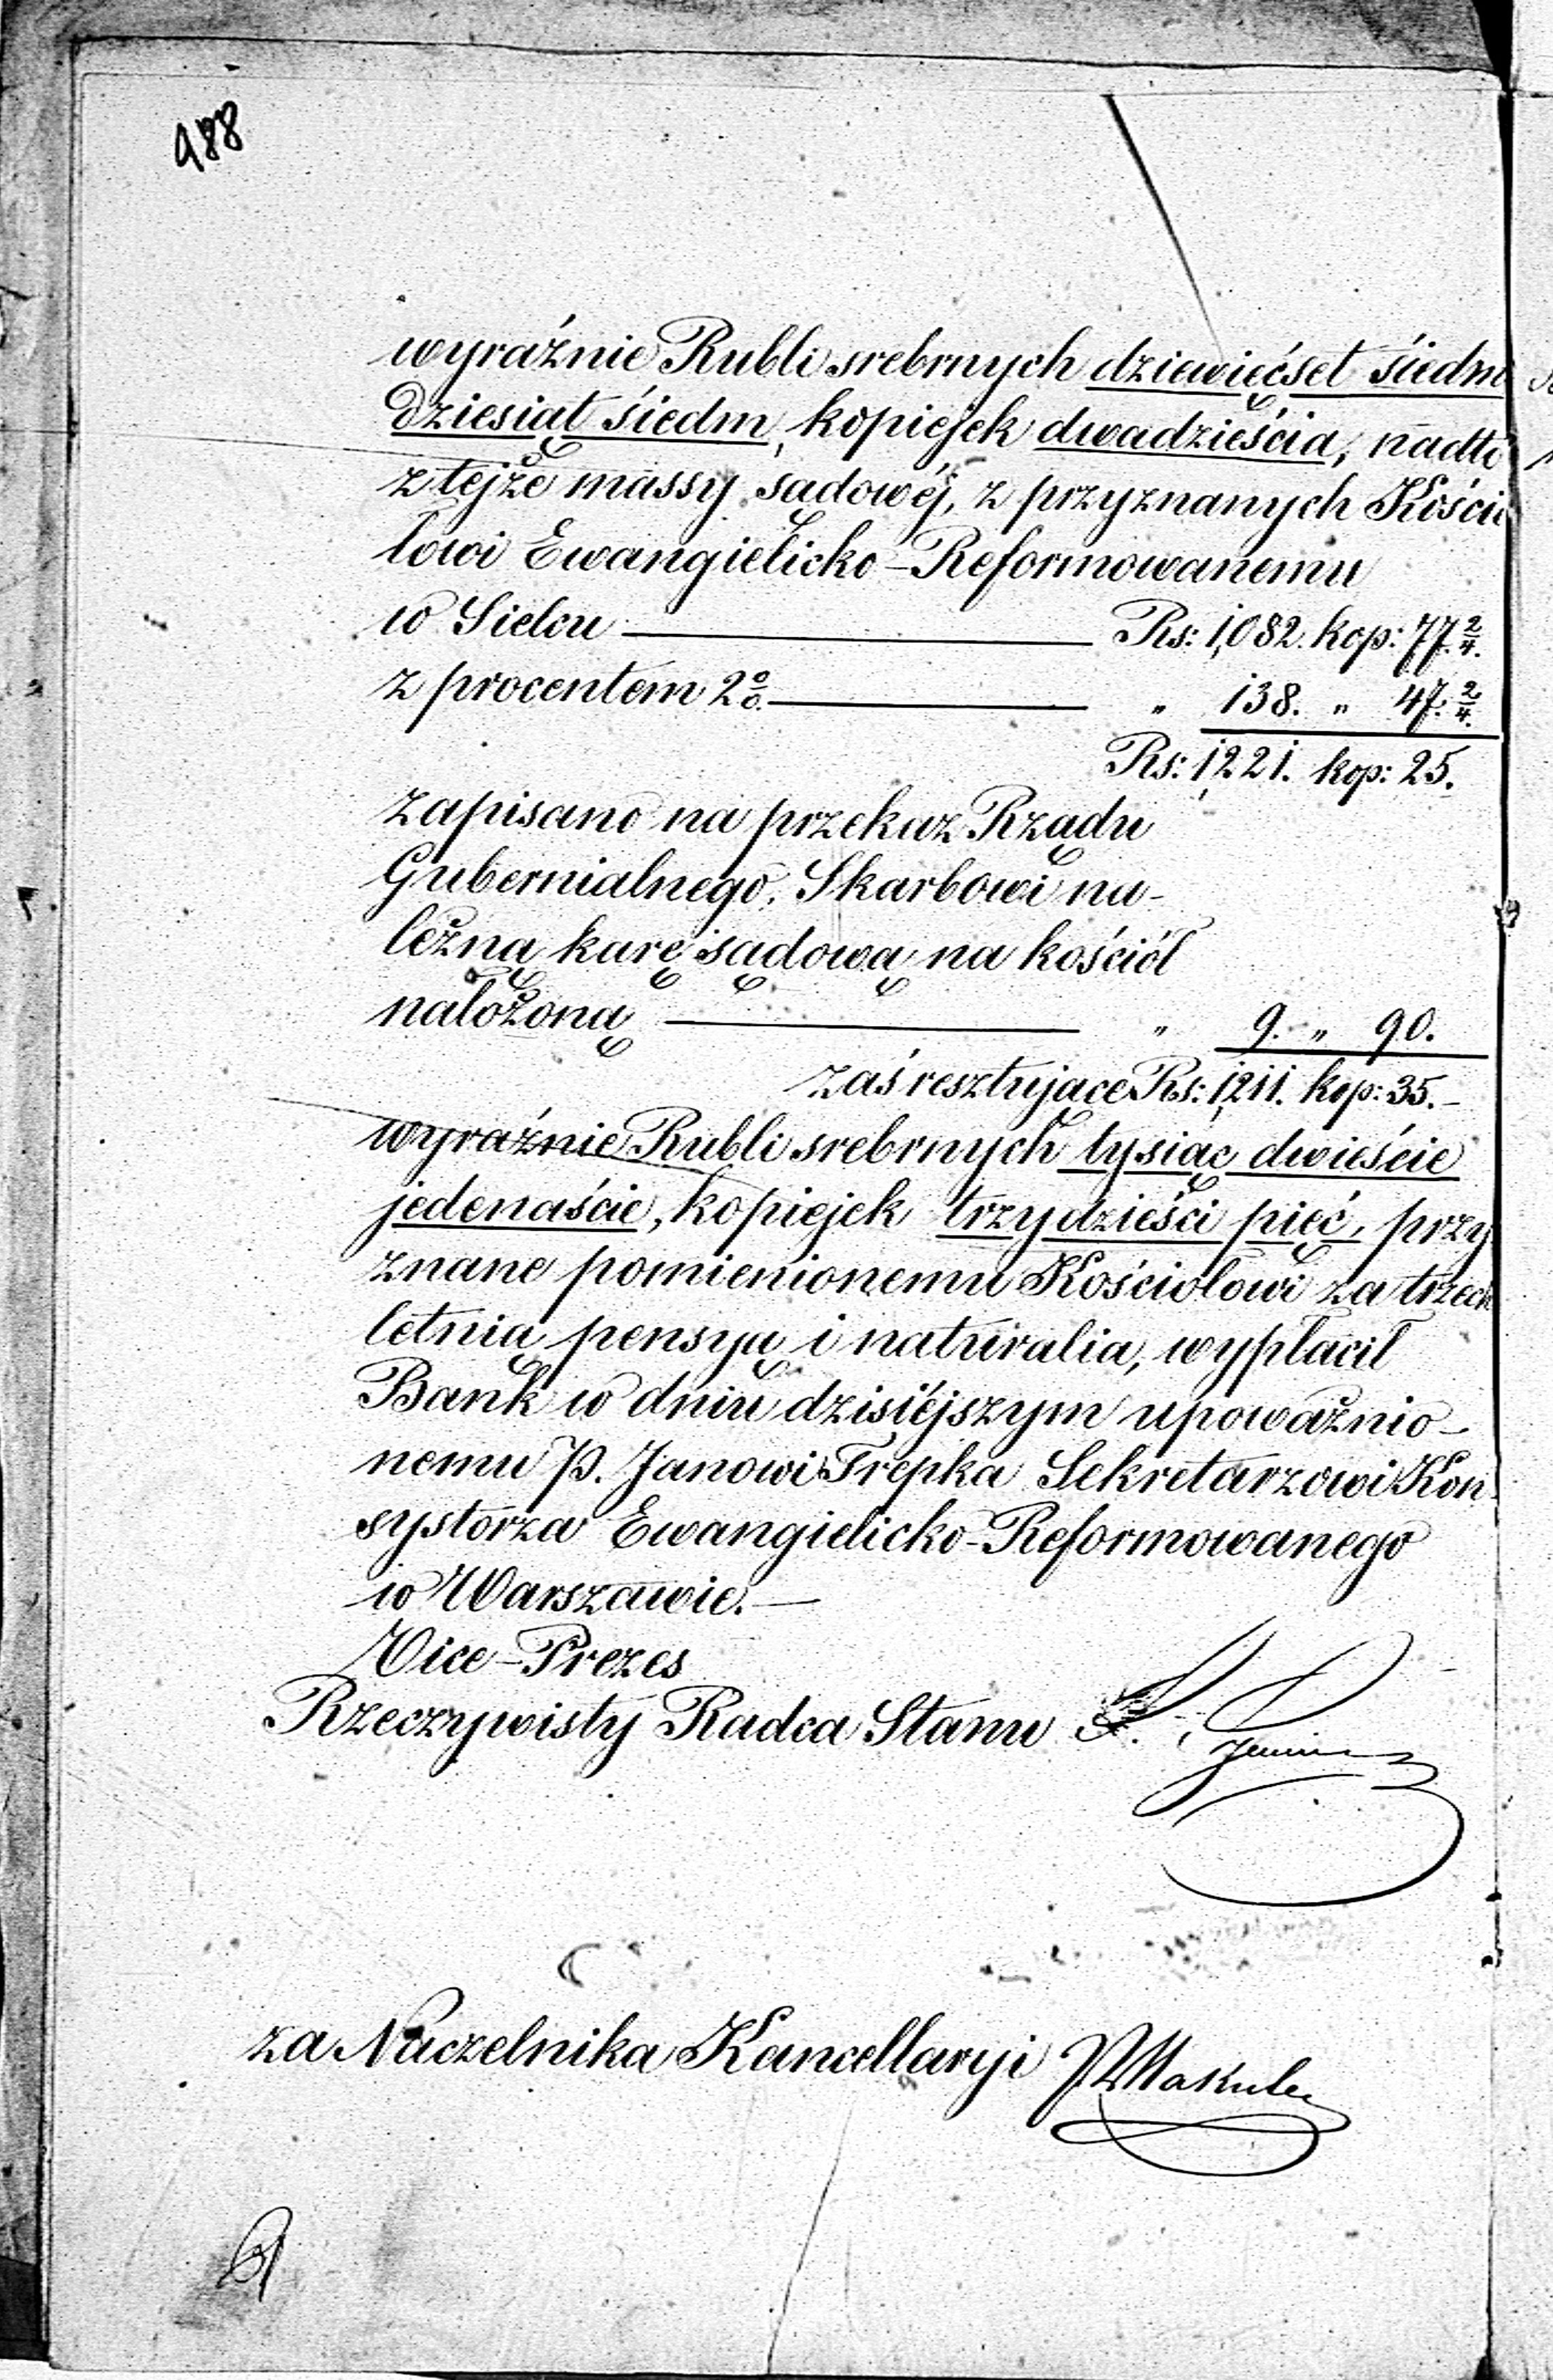 988
wyraźnie Rubli srebrnych dziewięćset śiedm
dziesiąt śiedm, kopiejek dwadzieścia, nadto
z tejże massy sądowéj, z przyznanych Kościo
łowi Ewangielicko-Reformowanemu
w Sielcu — Rs: 1,082. kop: 77 2/4.
z procentem 2 0/0. — " 138. " 47. 2/4.
Rs: 1,221. kop: 25.
zapisano na przekaz Rządu
Gubernialnego, Skarbowi na-
leżną karę sądową na kościół
nałożoną — " 9. " 90.
zaś resztujące Rs: 1,211. kop: 35.—
wyraźnie Rubli srebrnych tysiąc dwieście
jedenaście, kopiejek trzydzieści pięć, przy
znane pomienionemu Kościołowi za trzech
letnią pensyą i naturalia, wypłacił
Bank w dniu dzisiéjszym upoważnio-
nemu P. Janowi Trepka Sekretarzowi Kon
systorza Ewangielicko-Reformowanego
w Warszawie.—
Vice-Prezes
Rzeczywisty Radca Stanu
za Naczelnika Kancellaryi